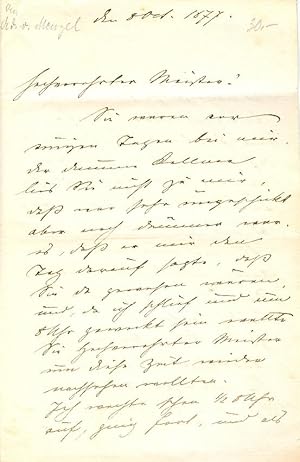 an
Ad. v. Menzel
den 8 Oct. 1877.
30.-
Hochverehrter Meister!
Sie waren vor
einigen Tagen bei mir.
Der dumme Kellner
ließ Sie nicht zu mir,
daß war sehr ungeschickt
aber noch dümmer war
es, daß er mir den
Tag darauf sagte, daß
Sie da gewesen wären,
und, da ich schlief und um
8 Uhr geweckt sein wollte
Sie Hochverehrter Meister
um diese Zeit wieder
nachsehen wollten.
Ich wachte schon ½ 8 Uhr
auf, ging fort, und als